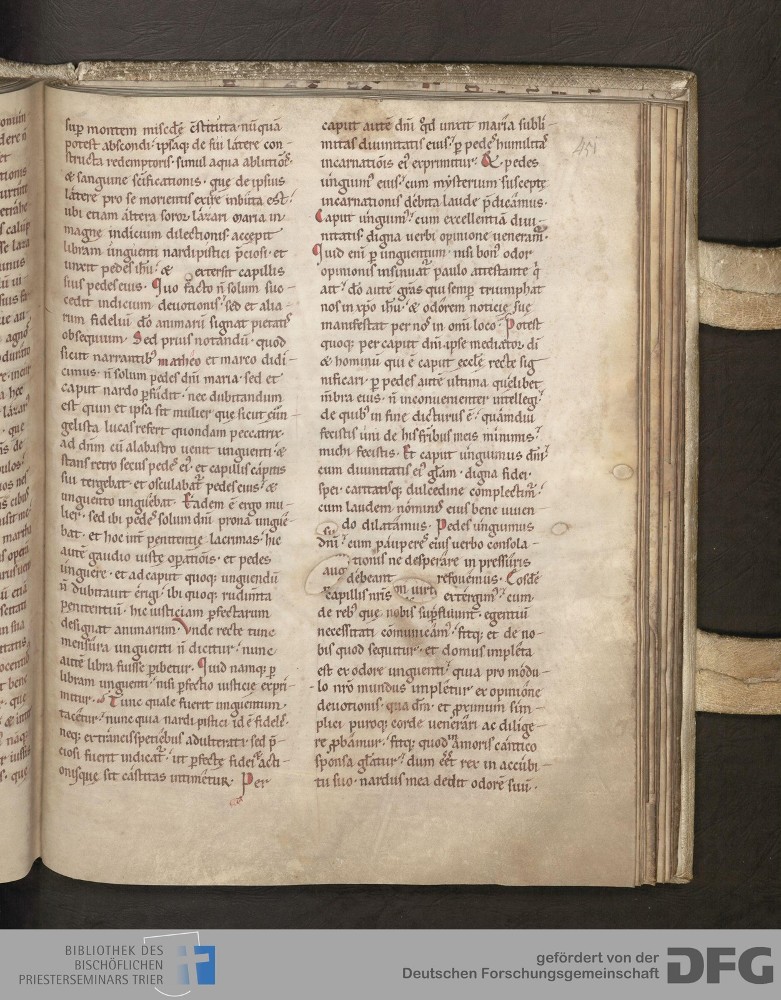 sup montem miscđe c̄stituta nūquā
potest abscondi · ipsaq; de sui latere con-
structa redemptoris · simul aqua ablutiōis
& sanguine sc̄ificationis · que de ipsius
latere pro se morientis exire inbuta est ·
ubi etiam altera soror lazari maria in
magne indicium dilectionis accepit
libram unguenti nardi pistici p̄ciosi · et
unxit pedes ih̄u · & extersit capillis
suis pedes eius · Quo facto n̄ solum suo-
cedit indicium deuotionis · sed et alia-
rum fideliū dō animarū signat pietatis
obsequium · Sed prius notandū · quod
sicut narrantibus matheo et marco didi-
cimus · n̄ solum pedes dn̄i maria · sed et
caput nardo p̄fudit · nec dubitandum
est quin et ipsa sit mulier que sicut euan-
gelista lucas refert quondam peccatrix ·
ad dn̄m cū alabastro uenit unguenti · &
stans retro secus pedes eī · et capillis capitis
sui tergebat · et osculabat̄ pedes eius · &
unguento unguebat · Eadem ē ergo mu-
lier · sed ibi pedes solum dn̄i prona ungue-
bat · et hoc int̄ penitentie lacrimas · hic
autē gaudio iuste op̄ationis · et pedes
unguere · et ad caput quoq; unguendū
n̄ dubitauit erigi · ibi quoq; rudimta
penitentiū · hic iusticiam p̄fectarum
designat animarum · Vnde recte tunc
mensura unguenti n̄ dicitur · nunc
autē libra fuisse p̄ibetur · Quid namq; p̄
libram unguenti · nisi p̄fectio iusticie expri-
mitur · Tunc quale fuerit unguentum
tacetur · nunc quia nardi pistici id ē fidelis
neq; extraneis speciebus adulterati · sed p̄-
ciosi fuerit indicat̄ · ut p̄fecte fidei acti-
onisque sit castitas intimetur · Per
caput autē dn̄i qđ unxit maria subli-
mitas diuinitatis eius · p̄ pedes humilitas
incarnatiōis eī exprimitur · Et pedes
unguim̄ eius · cum mysterium suscepte
incarnationis debita laude p̄dicamus ·
Caput unguimus · cum excellentiā diui-
nitatis digna uerbi opinione ueneram̄ ·
Quid eni p̄ unguentum · nisi bonus odor
opinionis insinuat̄ · paulo attestante q̄
ait · dō autē grās qui semp̄ triumphat
nos in xp̄o ih̄u · & odorem noticie sue
manifestat per nos in omi loco · Potest
quoq; per caput dn̄i ipse mediator di
& hominū qui ē caput eccl̄e recte sig-
nificari · p̄ pedes autē ultima quelibet
mēbra eius · n̄ inconuenienter intellegi ·
de quib; in fine dicturus ē · quamdiu
fecistis uni de his fribus meis minimis ·
michi fecistis · Et caput unguimus dn̄i ·
cum diuinitatis eī glām · digna fidei ·
spei · caritatisq; dulcedine complectimur ·
cum laudem nominis eius bene uiuen-
do dilatamus · Pedes unguimus
dn̄i · cum pauperes eius uerbo consola-
tionis ne desperare in pressuris
debeant refouemus · Eosdē
capillis nr̄is extergimus · cum
de rebus que nobis sup̄fluunt · egentiū
necessitati comunicam̄ · fitq; et de no-
bis quod sequitur · et domus impleta
est ex odore unguenti · quia pro modu-
lo nr̄o mundus impletur ex opinione
deuotionis · qua dm̄ · et p̄ximum sim-
plici puroq; corde uenerari ac dilige-
re p̄bamur · fitq; quod in amoris cantico
sponsa glatur · dum eēt rex in accubi-
tu suo · nardus mea dedit odorē suū ·
BIBLIOTHEK DES
BISCHÖFLICHEN
PRIESTERSEMINARS TRIER
gefördert von der
Deutschen Forschungsgemeinschaft
DFG